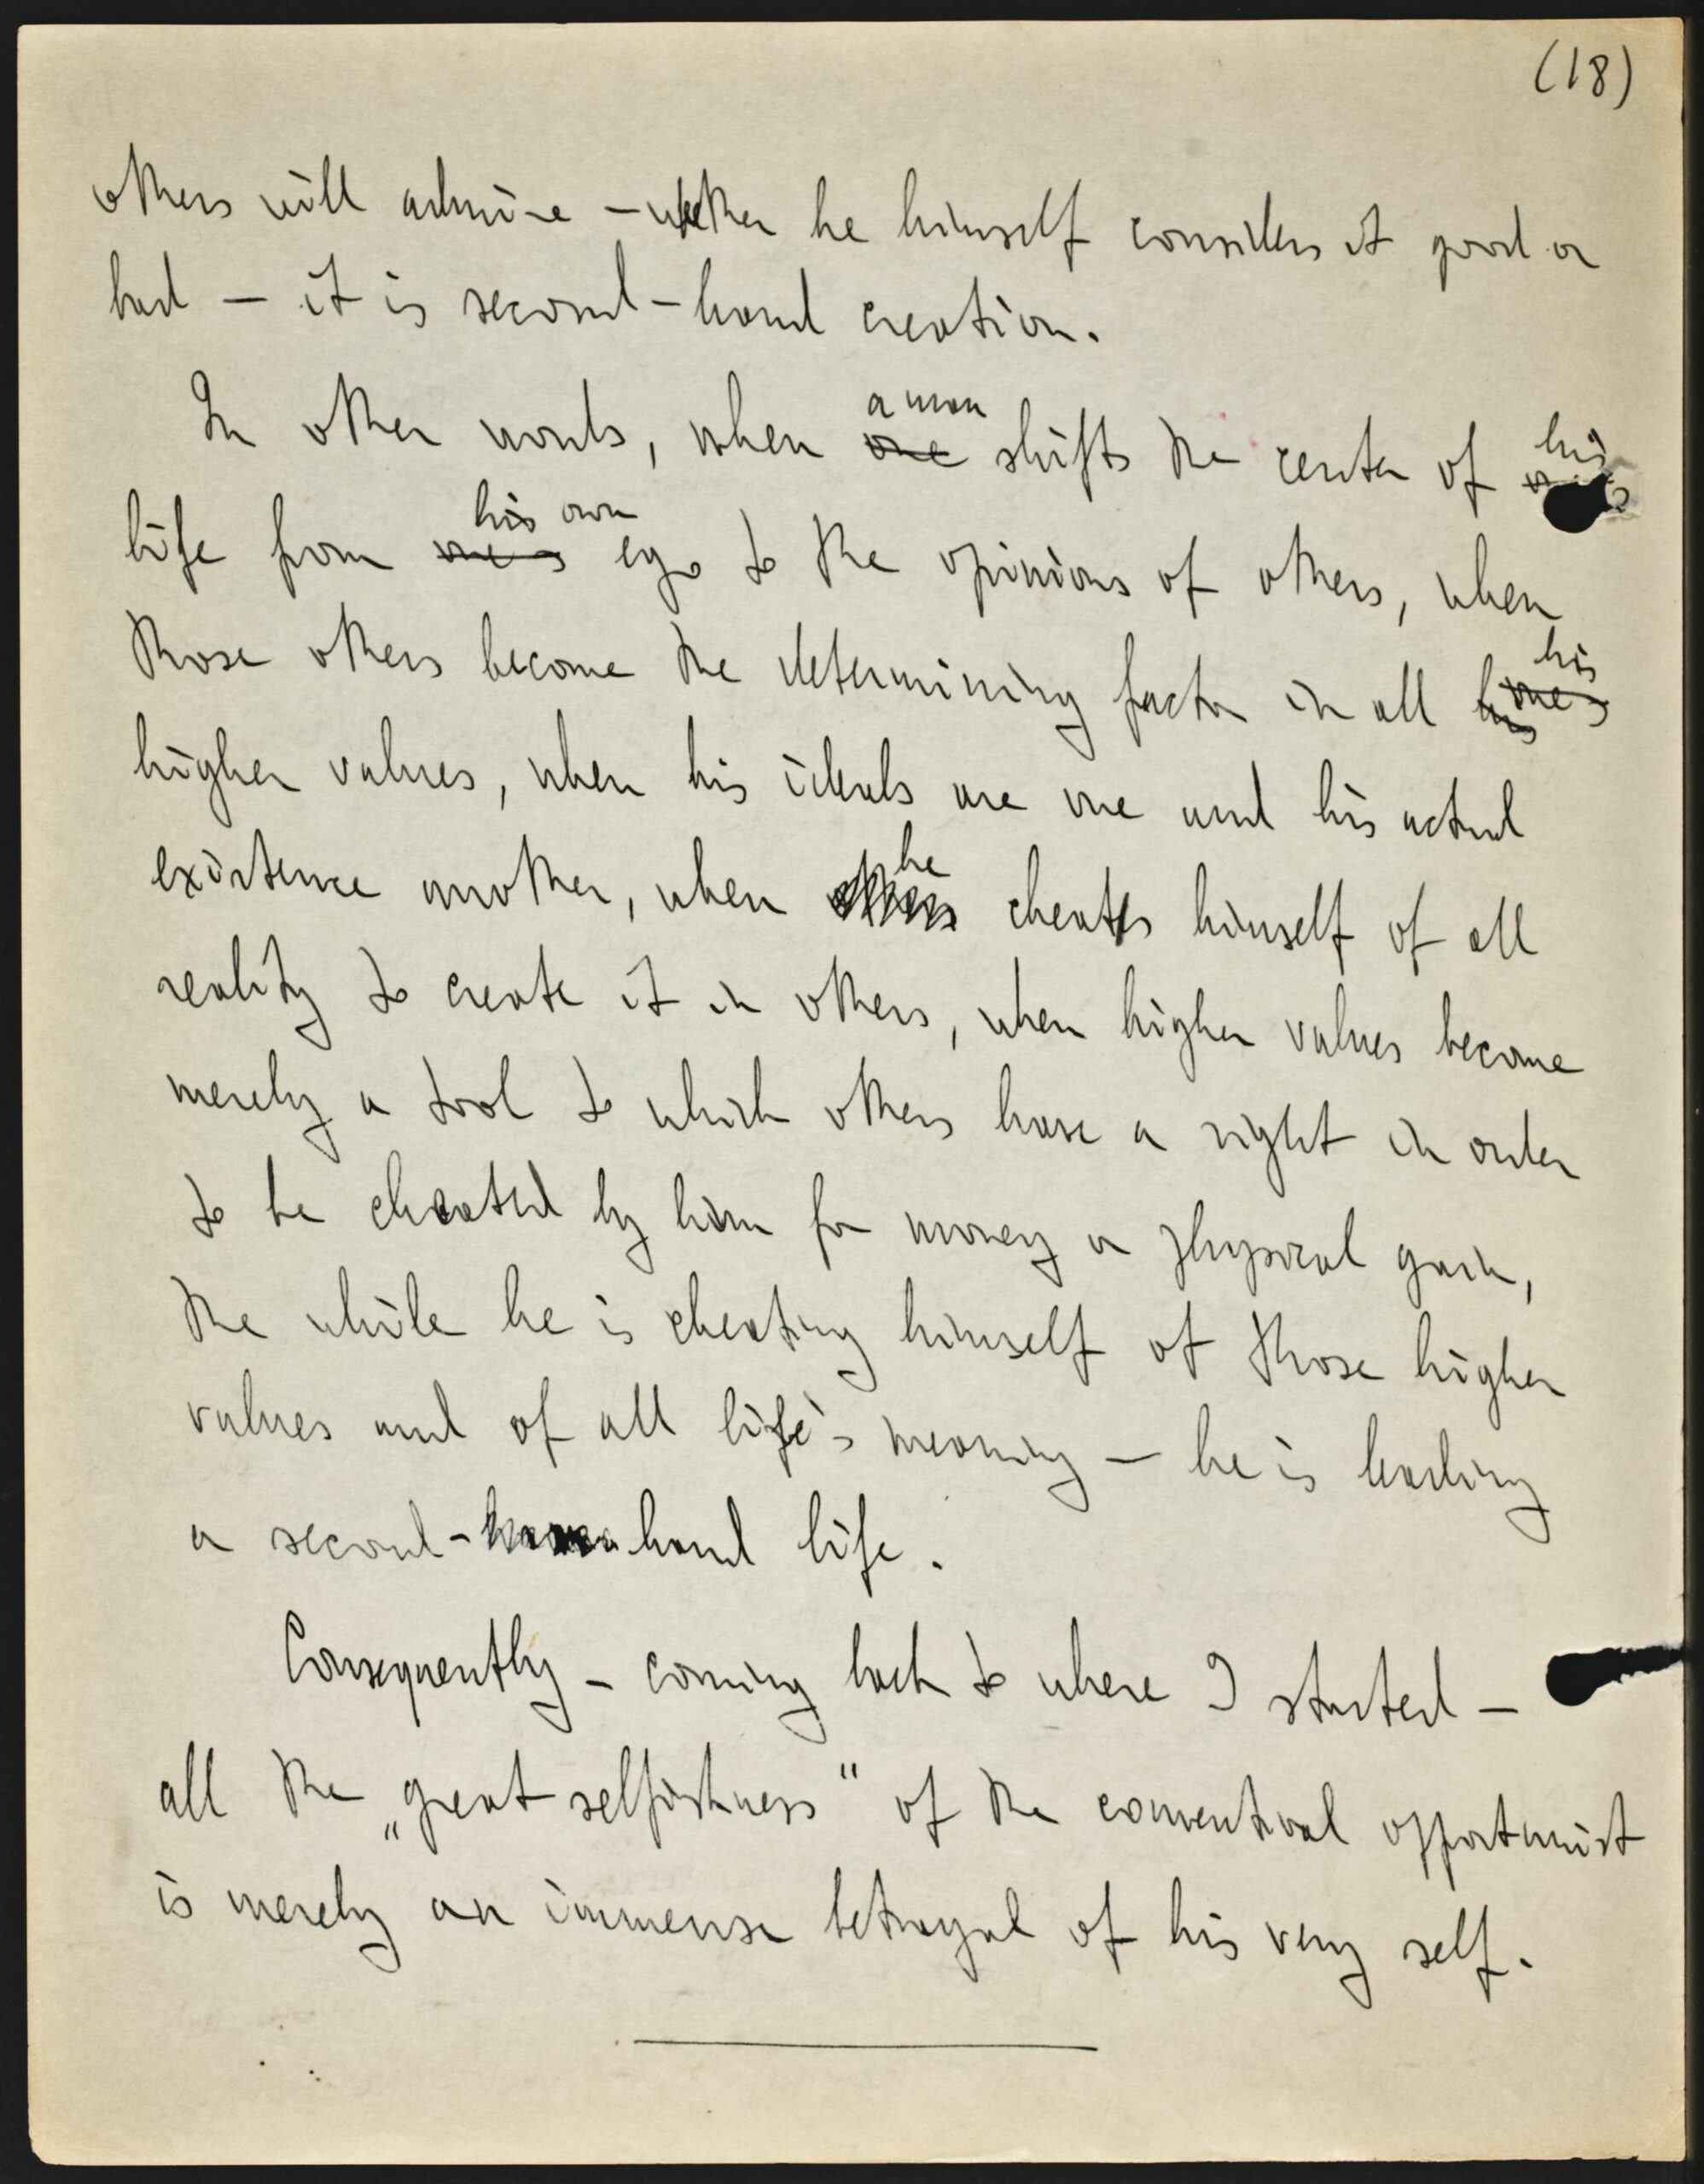 (18)
others will admire – whether he himself considers it good or
bad – it is second-hand creation.
In other words, when a man shifts the center of his
life from his own ego to the opinions of others, when
those others become the determining factor in all his
higher values, when his ideals are one and his actual
existence another, when he cheats himself of all
reality to create it in others, when higher values become
merely a tool to which others have a right in order
to be cheated by him for money or physical gain,
the while he is cheating himself of those higher
values and of all life's meaning – he is leading
a second-hand life.
Consequently – coming back to where I started –
all the „great selfishness" of the conventional opportunist
is merely an immense betrayal of his very self.